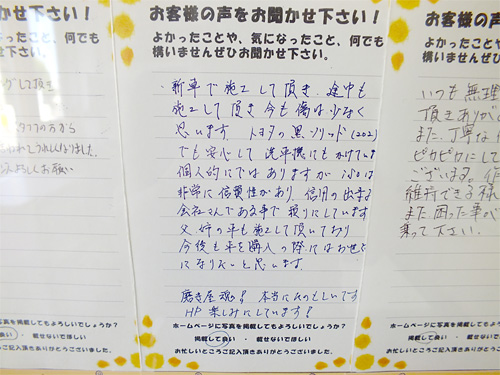 お客様の声をお聞かせ下さい!
よかったことや、気になったこと、何でも
構いませんぜひお聞かせ下さい。
・新車で施工して頂き、途中も
施工して頂き今も傷は少なく
思います トヨタの黒ソリッド(202)
でも安心して洗車機にもかけています
個人的にではありますが isoは
非常に信頼性があり、信用の出来る
会社さんである事で頼りにしています
父、姉の車も施工して頂いており
今後も車を購入の際にはお世話
になりたいと思います。
磨き屋魂!本当にたのもしいです
HP楽しみにしています!
ホームページに写真を掲載してもよろしいでしょうか?
掲載して良い ・ 載せないでほしい
お忙しいところご記入頂きありがとうございました。
んなこと、何でも
せ下さい。
グして頂き
スタッフの方から
よろしくお願い
写真を掲載してもよろしいでしょうか?
良い ・ 載せないでほしい
ご記入頂きありがとうございました。
お客様の声
よかったことや
構いませんぜひ
いつも無理
頂きありが
また、丁寧な
ピカピカにして
ございます。
維持できる様
また困った事が
乗って下さい。
ホームページに
掲載して
お忙しいところ